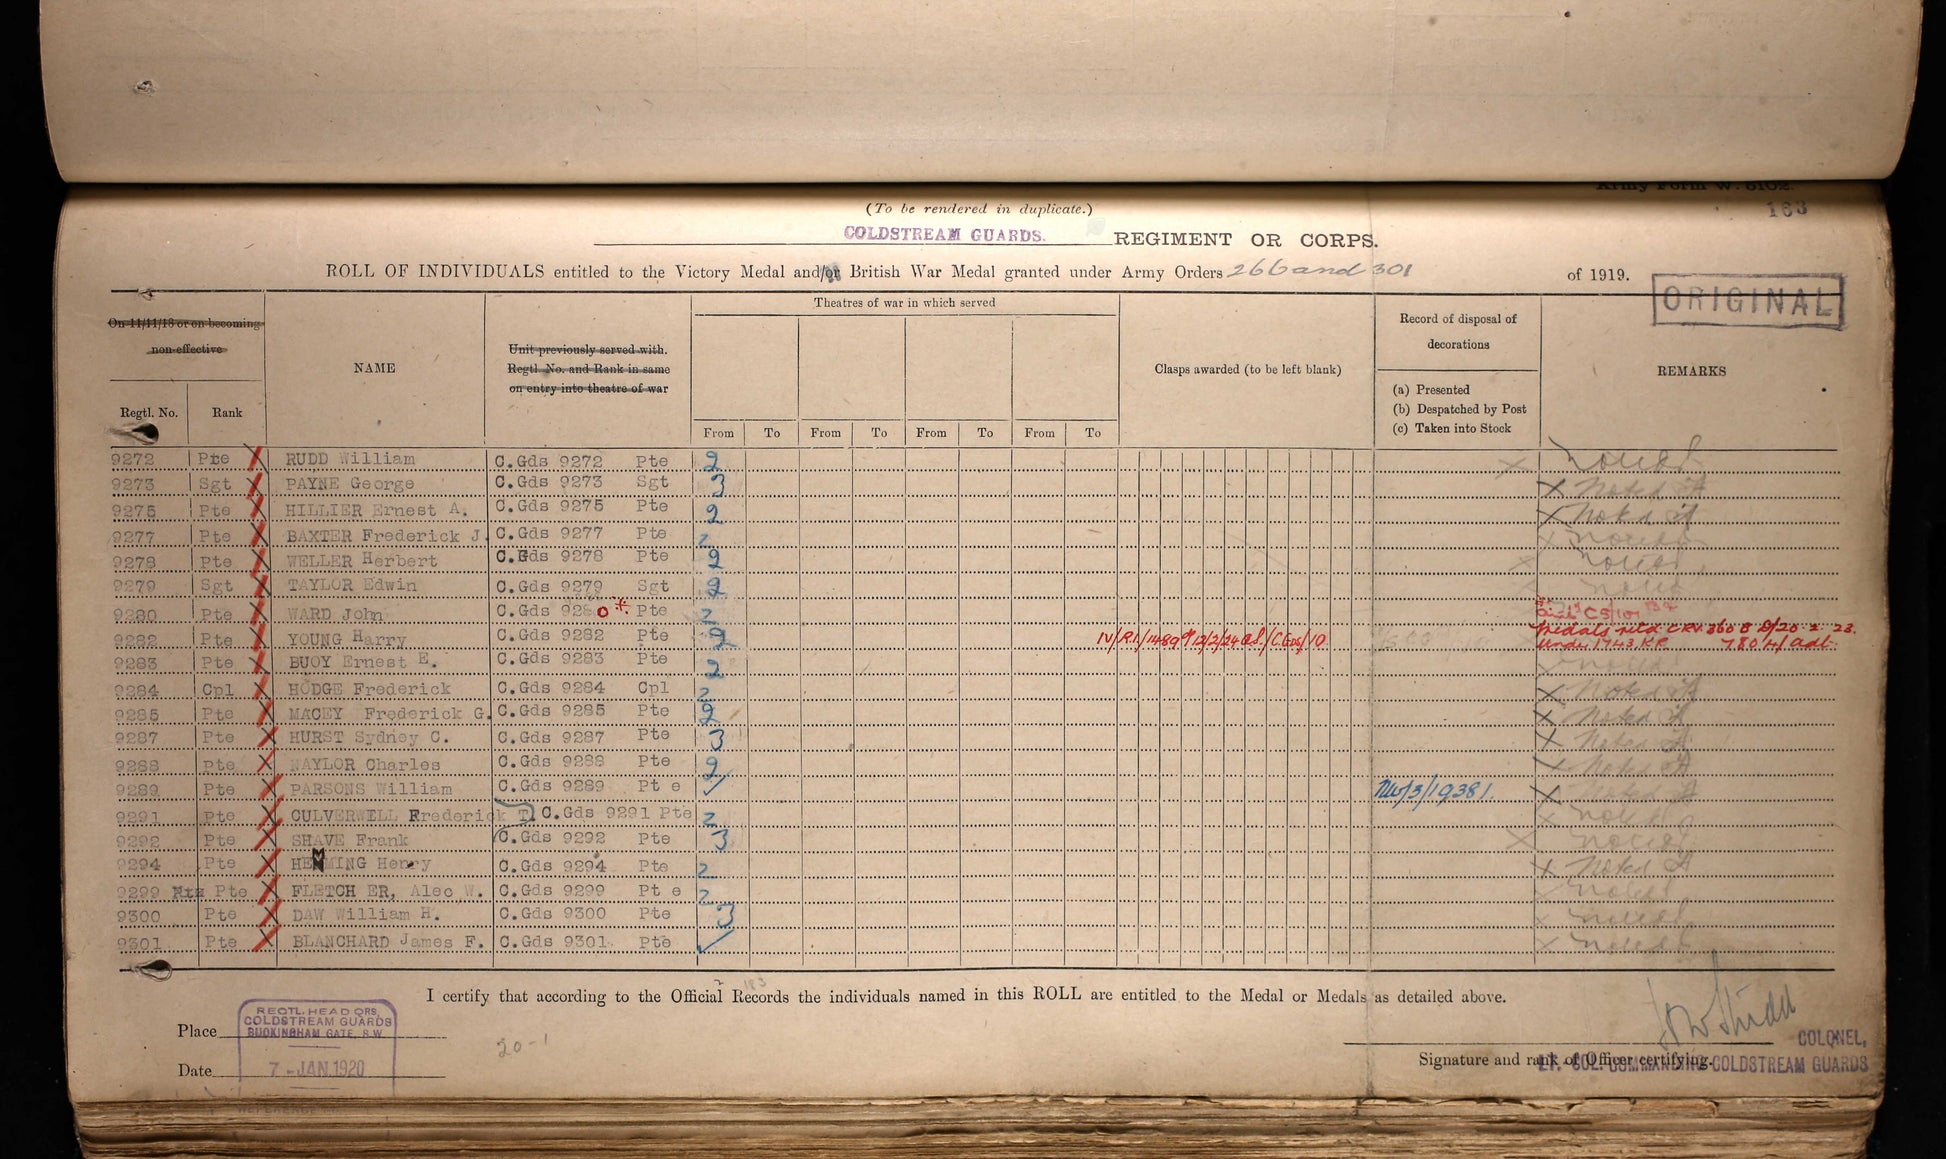 Army Form W. 5102.
163
(To be rendered in duplicate.)
COLDSTREAM GUARDS. REGIMENT OR CORPS.
ROLL OF INDIVIDUALS entitled to the Victory Medal and/or British War Medal granted under Army Orders 266 and 301 of 1919.
ORIGINAL
On 11/11/18 or on becoming non-effective
Regtl. No. Rank
NAME
Unit previously served with. Regtl. No. and Rank in same on entry into theatre of war
Theatres of war in which served
From To From To From To From To
Clasps awarded (to be left blank)
Record of disposal of decorations
(a) Presented
(b) Despatched by Post
(c) Taken into Stock
REMARKS
9272 Pte RUDD William C.Gds 9272 Pte 2 Noted
9273 Sgt PAYNE George C.Gds 9273 Sgt 3 X Noted
9275 Pte HILLIER Ernest A. C.Gds 9275 Pte 2 X Noted
9277 Pte BAXTER Frederick J. C.Gds 9277 Pte 2 X Noted
9278 Pte WELLER Herbert C.Gds 9278 Pte 2 Noted
9279 Sgt TAYLOR Edwin C.Gds 9279 Sgt 2 Noted
9280 Pte WARD John C.Gds 9280 Pte 2
9282 Pte YOUNG Harry C.Gds 9282 Pte 2 Medals retd
9283 Pte BUOY Ernest E. C.Gds 9283 Pte 2 X Noted
9284 Cpl HODGE Frederick C.Gds 9284 Cpl 2 X Noted
9285 Pte MACEY Frederick G. C.Gds 9285 Pte 2 X Noted
9287 Pte HURST Sydney C. C.Gds 9287 Pte 3 X Noted
9288 Pte NAYLOR Charles C.Gds 9288 Pte 2 X Noted
9289 Pte PARSONS William C.Gds 9289 Pt e X Noted
9291 Pte CULVERWELL Frederick T. C.Gds 9291 Pte 2 X Noted
9292 Pte SHAVE Frank C.Gds 9292 Pte 3 X Noted
9294 Pte HEMMING Henry C.Gds 9294 Pte 2 X Noted
9299 Pte FLETCH ER, Alec W. C.Gds 9299 Pt e 2 X Noted
9300 Pte DAW William H. C.Gds 9300 Pte 3 X Noted
9301 Pte BLANCHARD James F. C.Gds 9301 Pte X Noted
I certify that according to the Official Records the individuals named in this ROLL are entitled to the Medal or Medals as detailed above.
Place
REGTL. HEAD QRS, COLDSTREAM GUARDS BUCKINGHAM GATE, S.W.
20-1
Date
7 - JAN 1920
COLONEL,
Signature and rank of Officer certifying.
LT. COL. COMMANDING COLDSTREAM GUARDS